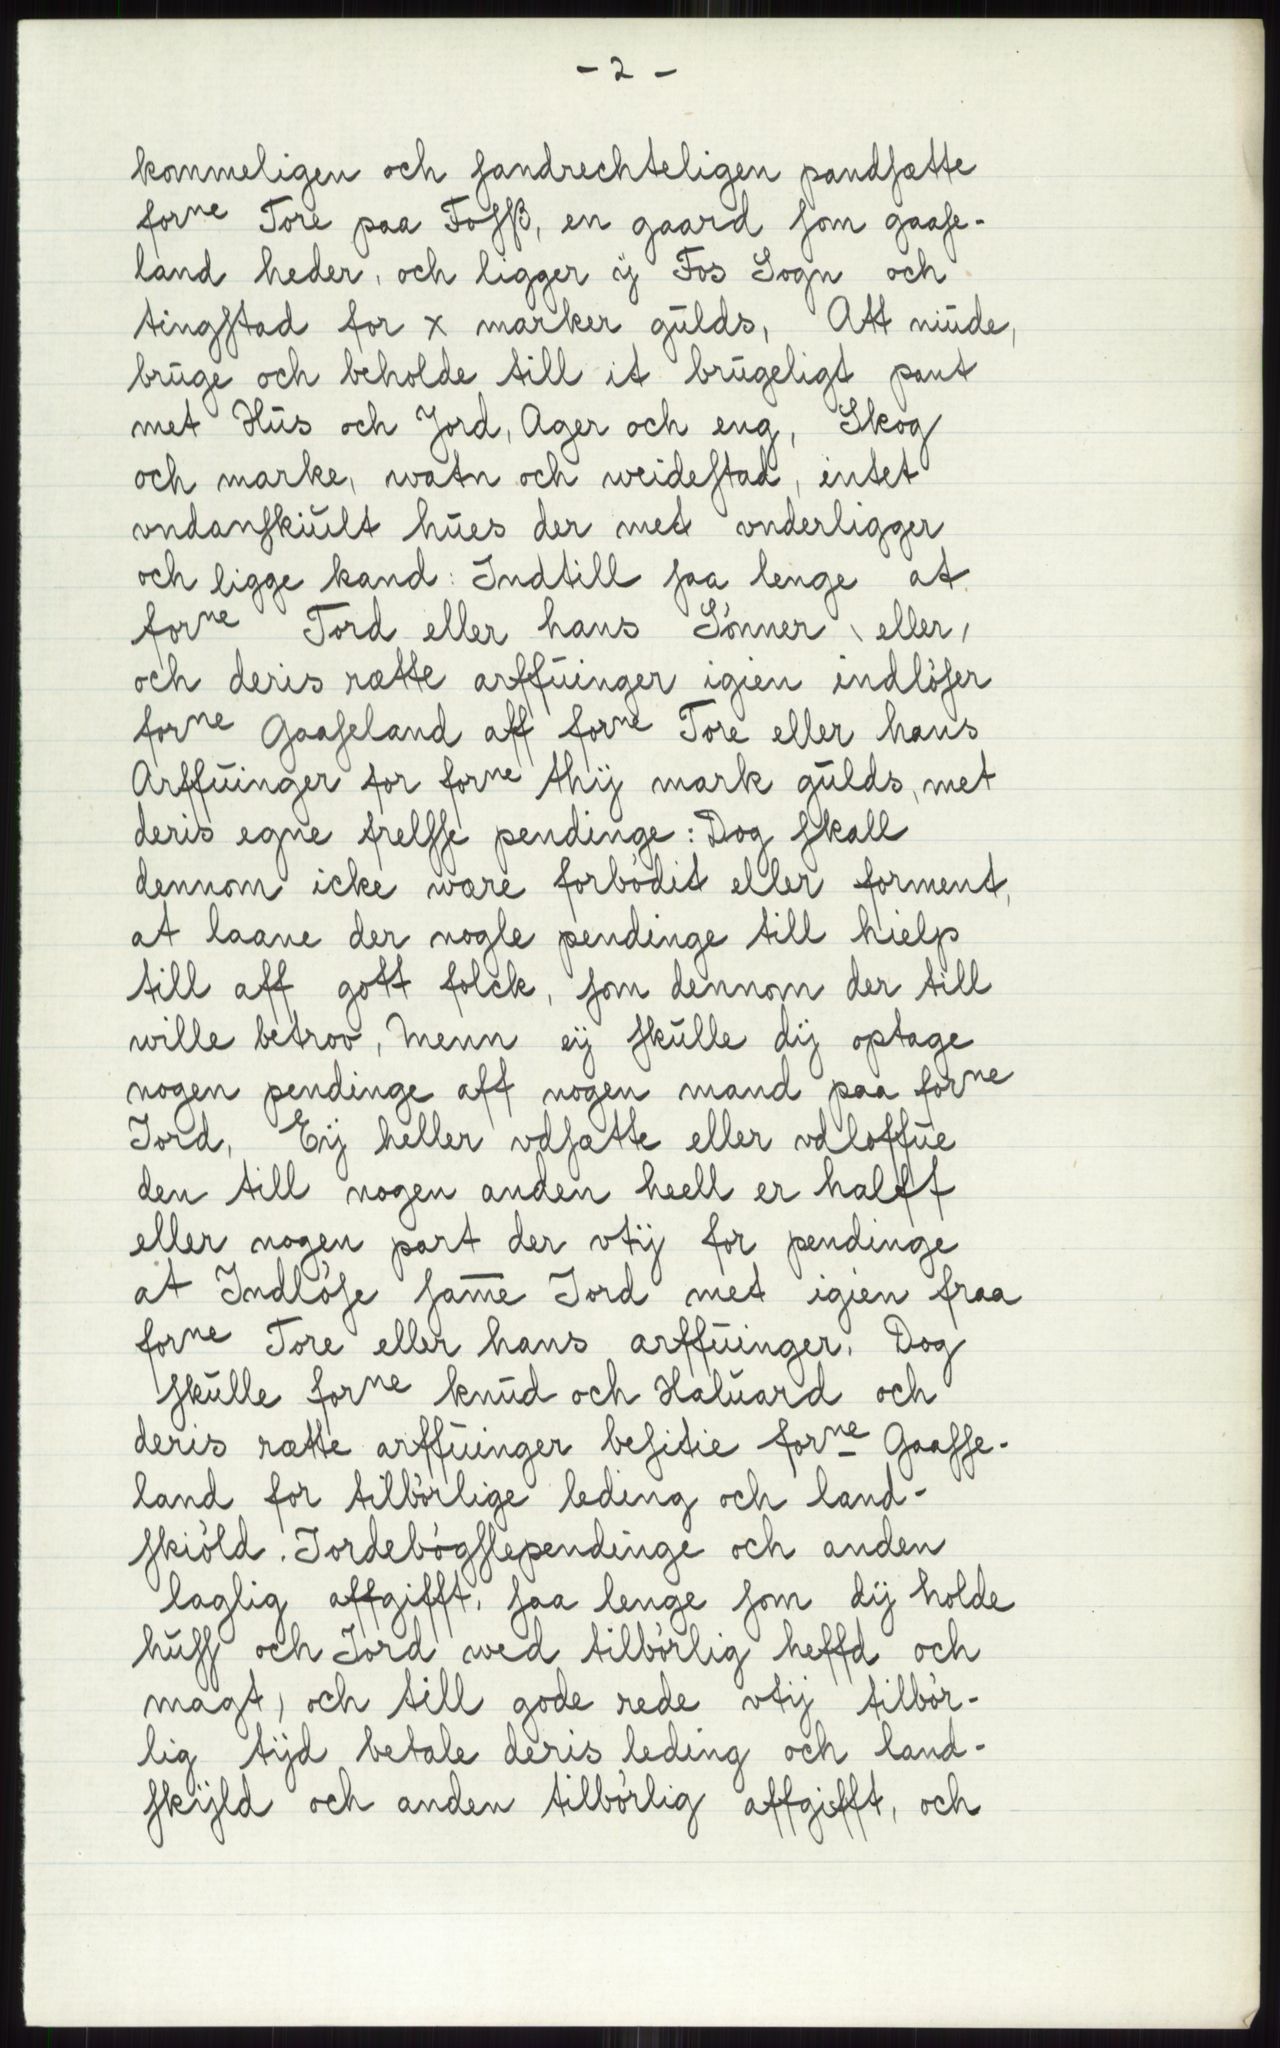 - 2 -
kommeligen och sandrechteligen pandsætte
forne Tore paa Fosß, en gaard som gaase-
land heder, och ligger ij Fos Sogn och
tingstad for x marker gŭlds, Att niŭde,
brŭge och beholde till it brŭgeligt pant
met Hŭs och Jord, Ager och eng, Skog
och marke, watn och weidestad, intet
vndanskiŭlt hŭes der met vnderligger
och ligge kand: Indtill saa lenge at
forne Tord eller hans Sónner \ eller /
och deris rætte arffŭinger igien indlóser
forne Gaaseland aff forne Tore eller hans
Arffŭinger for forne thij mark gŭlds, met
deris egne frelsse pendinge: Dog skall
dennom icke wære forbódit eller forment,
at laane der nogle pendinge till hielp
till aff gott folck, som dennom der till
wille betroo, Menn eij skŭlle dij optage
nogen pendinge aff nogen mand paa forne
Jord, Eij heller vdsætte eller vdloffŭe
den till nogen anden heell er halff
eller nogen part der vtij for pendinge
at Indlóse sam̅e Jord met igien fraa
forne Tore eller hans arffŭinger. Dog
skŭlle forne knŭd och Halŭard och
deris rætte arffŭinger besitie forne Gaasse-
land for tilbórlige leding och land-
skióld. Jordebógsspendinge och anden
laglig affgifft, saa lenge som dij holde
hŭss och Jord wed tilbórlig heffd och
magt, och till gode rede vtij tilbór-
lig tijd betale deris leding och land-
skijld och anden tilbórlig affgifft, och